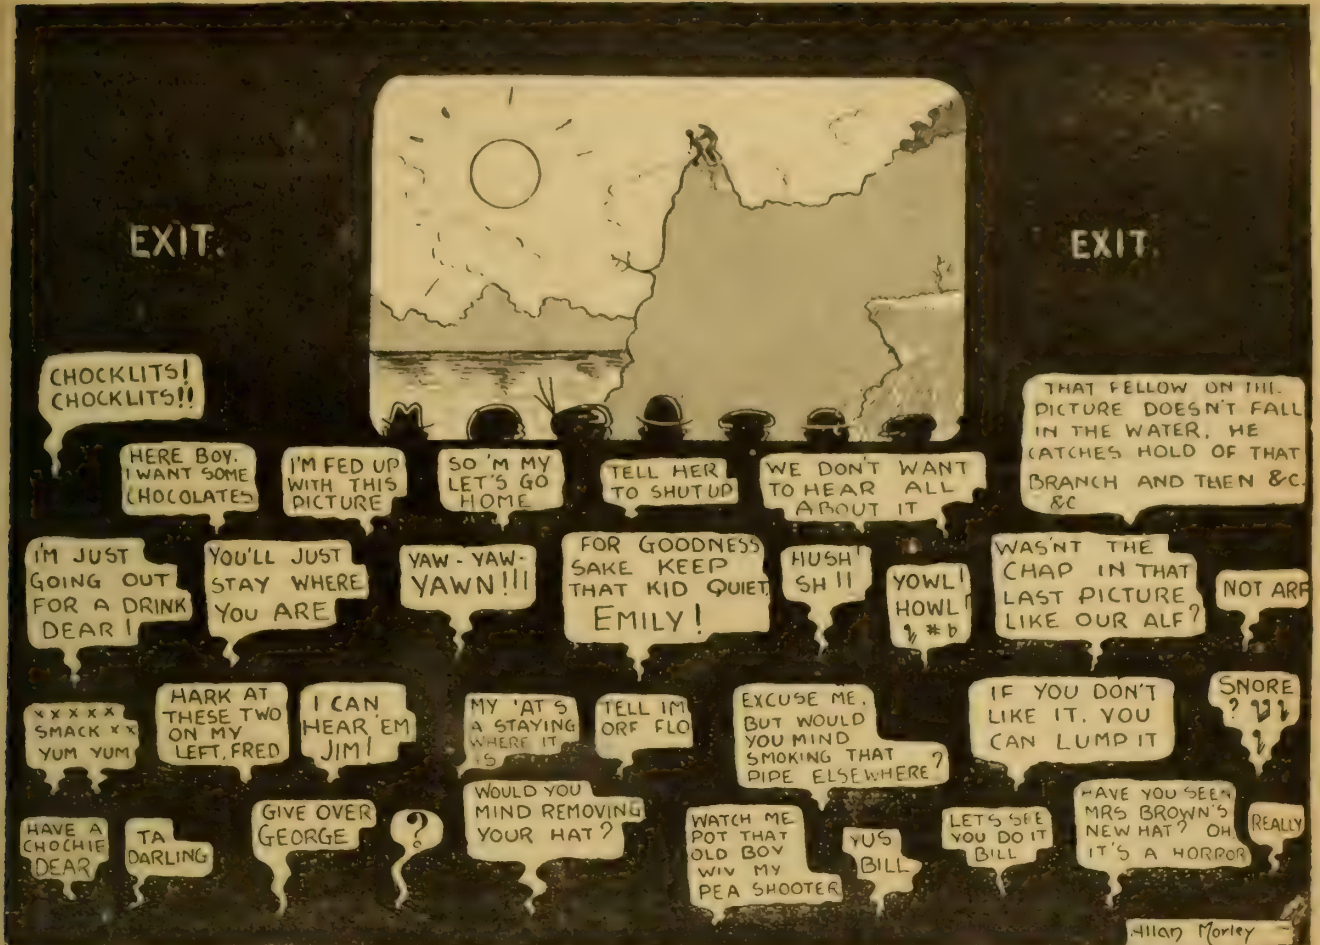 EXIT.
EXIT.
CHOCKLITS!
CHOCKLITS!!
THAT FELLOW ON THE
PICTURE DOESN'T FALL
IN THE WATER. HE
CATCHES HOLD OF THAT
BRANCH AND THEN &C.
&C
HERE BOY.
I WANT SOME
CHOCOLATES
I'M FED UP
WITH THIS
PICTURE
SO 'M MY
LET'S GO
HOME
TELL HER
TO SHUT UP
WE DON'T WANT
TO HEAR ALL
ABOUT IT
I'M JUST
GOING OUT
FOR A DRINK
DEAR!
YOU'LL JUST
STAY WHERE
YOU ARE
YAW-YAW-
YAWN!!!
FOR GOODNESS
SAKE KEEP
THAT KID QUIET,
EMILY!
HUSH!
SH!!
YOWL!
HOWL!
WAS'NT THE
CHAP IN THAT
LAST PICTURE
LIKE OUR ALF?
NOT ARF
X X X X X
SMACK X X
YUM YUM
HARK AT
THESE TWO
ON MY
LEFT, FRED
I CAN
HEAR 'EM
JIM!
MY 'AT S
A STAYING
WHERE IT
IS
TELL IM
ORF FLO
EXCUSE ME,
BUT WOULD
YOU MIND
SMOKING THAT
PIPE ELSEWHERE?
IF YOU DON'T
LIKE IT. YOU
CAN LUMP IT
SNORE
?
HAVE A
CHOCHIE
DEAR
TA
DARLING
GIVE OVER
GEORGE
?
WOULD YOU
MIND REMOVING
YOUR HAT?
WATCH ME
POT THAT
OLD BOY
WIV MY
PEA SHOOTER
YUS
BILL
LETS SEE
YOU DO IT
BILL
HAVE YOU SEEN
MRS BROWN'S
NEW HAT? OH
IT'S A HORROR
REALLY
Allan Morley